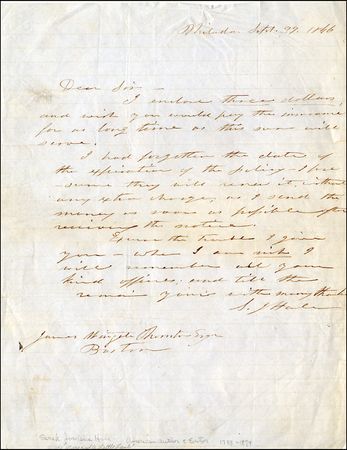 Philada. Sept. 29. 1866
Dear Sir—
I enclose three dollars,
and wish you would pay the insurance
for as long time as this sum will
serve.
I had forgotten the date of
the expiration of the policy—I pre-
sume they will renew it, without
any extra charge, as I send the
money as soon as possible after
receiving the notice.
Excuse the trouble I give
you— when I am rich I
will remember all your
kind offices; and till then
remain yours with many thanks
S. J. Hale
James Wingate Esqr
Boston
Sarah Josepha Hale American Author & Editor 1788-1879